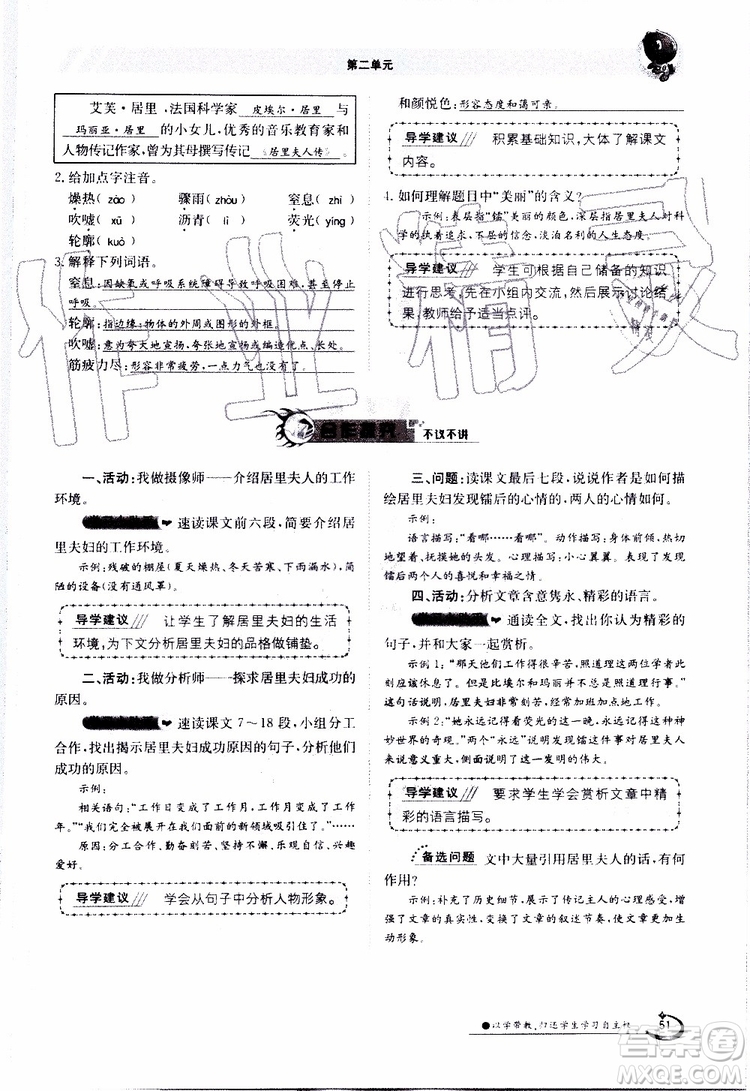 第二单元
艾芙·居里,法国科学家 皮埃尔·居里 与
玛丽亚·居里 的小女儿,优秀的音乐教育家和
人物传记作家,曾为其母撰写传记《居里夫人传》
2. 给加点字注音。
燥热(zào) 骤雨(zhòu) 窒息(zhì)
吹嘘(xū) 沥青(lì) 荧光(yíng)
轮廓(kuò)
3. 解释下列词语。
窒息:因缺氧或呼吸系统障碍导致呼吸困难,甚至停止
呼吸。
轮廓:指边缘;物体的外周或图形的外框。
吹嘘:意为夸大地宣扬,夸张地宣扬、编造优点、长处。
筋疲力尽:形容非常疲劳,一点力气也没有了。
和颜悦色:形容态度和蔼可亲。
导学建议 积累基础知识,大体了解课文
内容。
4. 如何理解题目中“美丽”的含义?
示例:表层指“镭”美丽的颜色,深层指居里夫人对科
学的执着追求,不屈的信念,淡泊名利的人生态度。
导学建议 学生可根据自己储备的知识
进行思考,先在小组内交流,然后展示讨论结
果,教师给予适当点评。
合作探究 不议不讲
一、活动:我做摄像师——介绍居里夫人的工作
环境。
速读课文前六段,简要介绍居
里夫妇的工作环境。
示例:残破的棚屋(夏天燥热、冬天苦寒、下雨漏水),简
陋的设备(没有通风罩)
导学建议 让学生了解居里夫妇的生活
环境,为下文分析居里夫妇的品格做铺垫。
二、活动:我做分析师——探求居里夫妇成功的
原因。
速读课文7~18段,小组分工
合作,找出揭示居里夫妇成功原因的句子,分析他们
成功的原因。
示例:
相关语句:“工作日变成了工作月,工作月变成了工作
年。”“我们完全被展开在面前的新领域吸引住了。……”
原因:分工合作,勤奋工作,坚持不懈,苦中作乐,兴趣
爱好。
导学建议 学会从句子中分析人物形象。
三、问题:读课文最后七段,说说作者是如何描
绘居里夫妇发现镭后的心情的,两人的心情如何。
示例:
语言描写:“看哪……看哪”。动作描写:身体前倾,热切
地望着、抚摸她的头发。心理描写:小心翼翼。表现了发现
镭后两个人的喜悦和轻松的心情。
四、活动:分析文章含意隽永、精彩的语言。
通读全文,找出你认为精彩的
句子,并和大家一起赏析。
示例1:“那天他们工作得很辛苦,照道理两位学者此
刻应该休息了。但比埃尔和玛丽并不总是照道理行事。”
这句话写出了居里夫妇非常刻苦,常常加班加点地工作。
示例2:“她永远记得看荧光的这一晚,永远记得这种神
妙世界的奇观。”两个“永远”说明发现镭对居里夫人来
说意义重大,她非常喜悦、欣慰。
导学建议 要求学生学会赏析文章中精
彩的语言描写。
备选问题 文中大量引用居里夫人的话,有何
作用?
示例:补充了历史细节,展示了传记主人的心理感受,
增强了文章的真实性,变化了文章的叙述节奏,使文章更加
生动形象。
●以学带教,归还学生学习自主权
51
作业精灵
答案圈
MXQE.COM